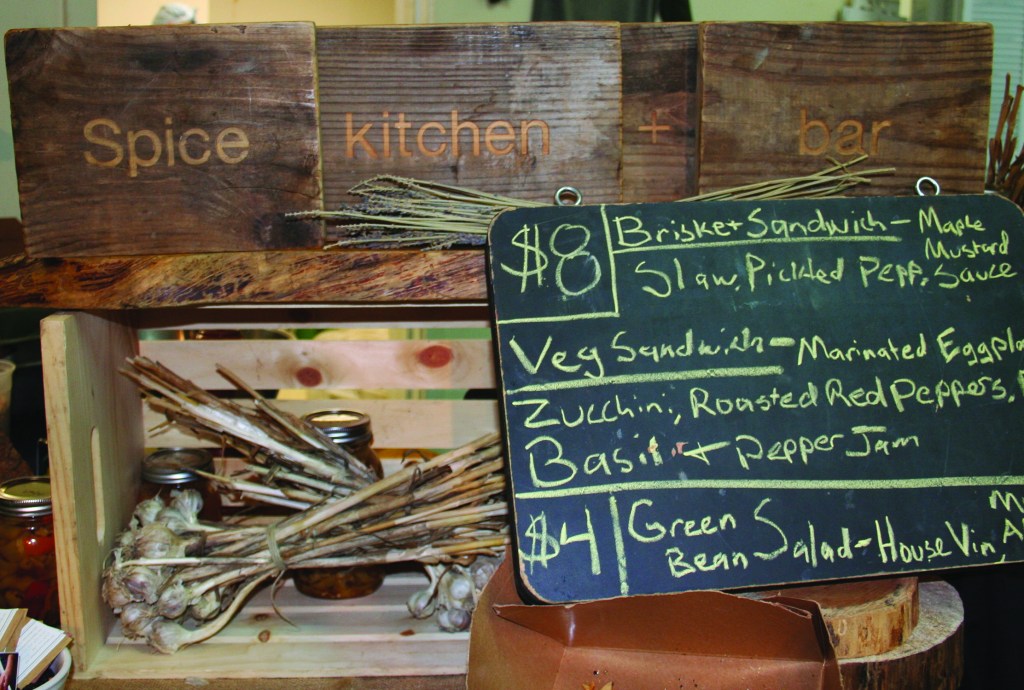 Spice kitchen + bar
$8 Brisket Sandwich - Maple
Mustard
Slaw, Pickled Pepp, Sauce
Veg Sandwich - Marinated
Zucchini, Roasted Red Peppers,
Basil + Pepper Jam
$4 Green
Bean Salad - House Vin,